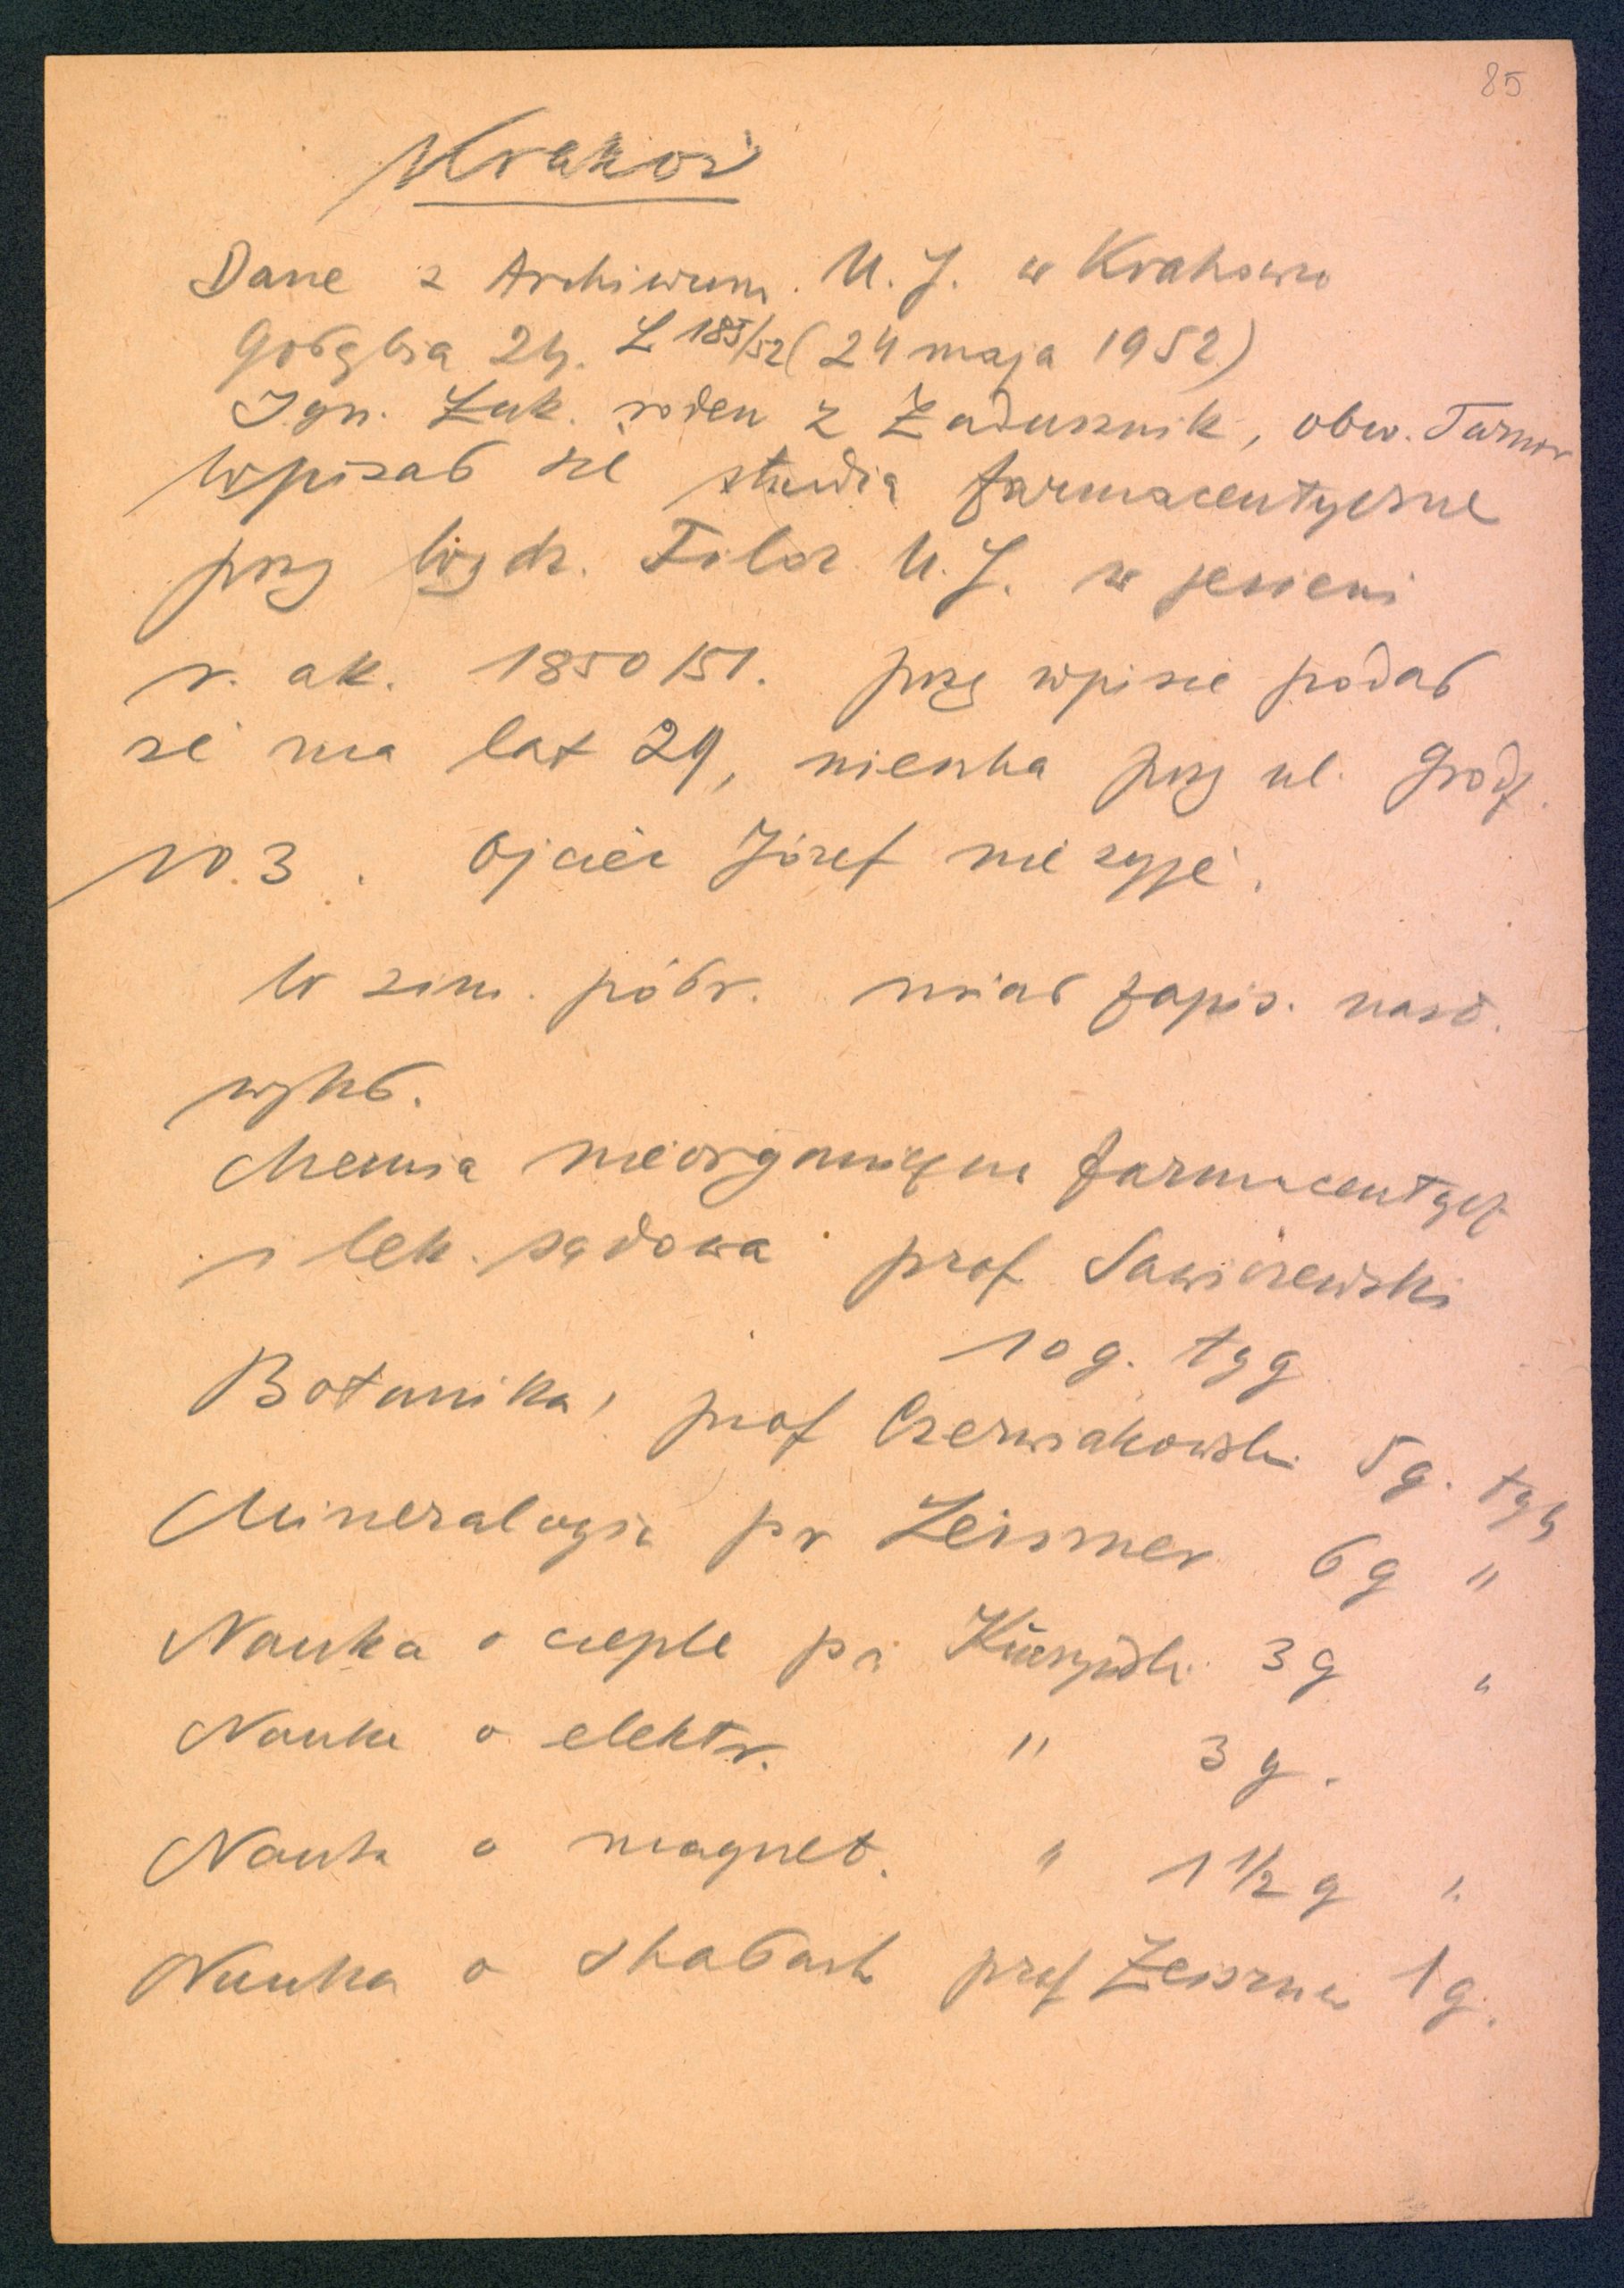 85
Kraków
Dane z Archiwum. U. J. w Krakowie
Gołębia 24. L 185/52 (24 maja 1952)
Ign. Łuk. rodem z Zadusznik, obw. Tarnow
Wpisał się studia farmaceutyczne
przy Wydz. Filoz U. J. w jesieni
r. ak. 1850/51. przy wpisie podał
że ma lat 29, mieszka przy ul. Grodz.
103. Ojciec Józef nie żyje.
W zim. półr. miał zapis. nast.
wykł.
Chemia nieorganiczna farmaceutycz
i lek. sądowa prof Sawiczewski
10 g. tyg
Botanika, prof Czerwiakowski 5 g. tyg
Mineralogia pr Zeiszner 6 g "
Nauka o cieple pr Kuczyńsk. 3 g "
Nauka o elektr. " 3 g.
Nauka o magnet. " 1 1/2 g "
Nauka o skałach prof Zeiszner 1 g.